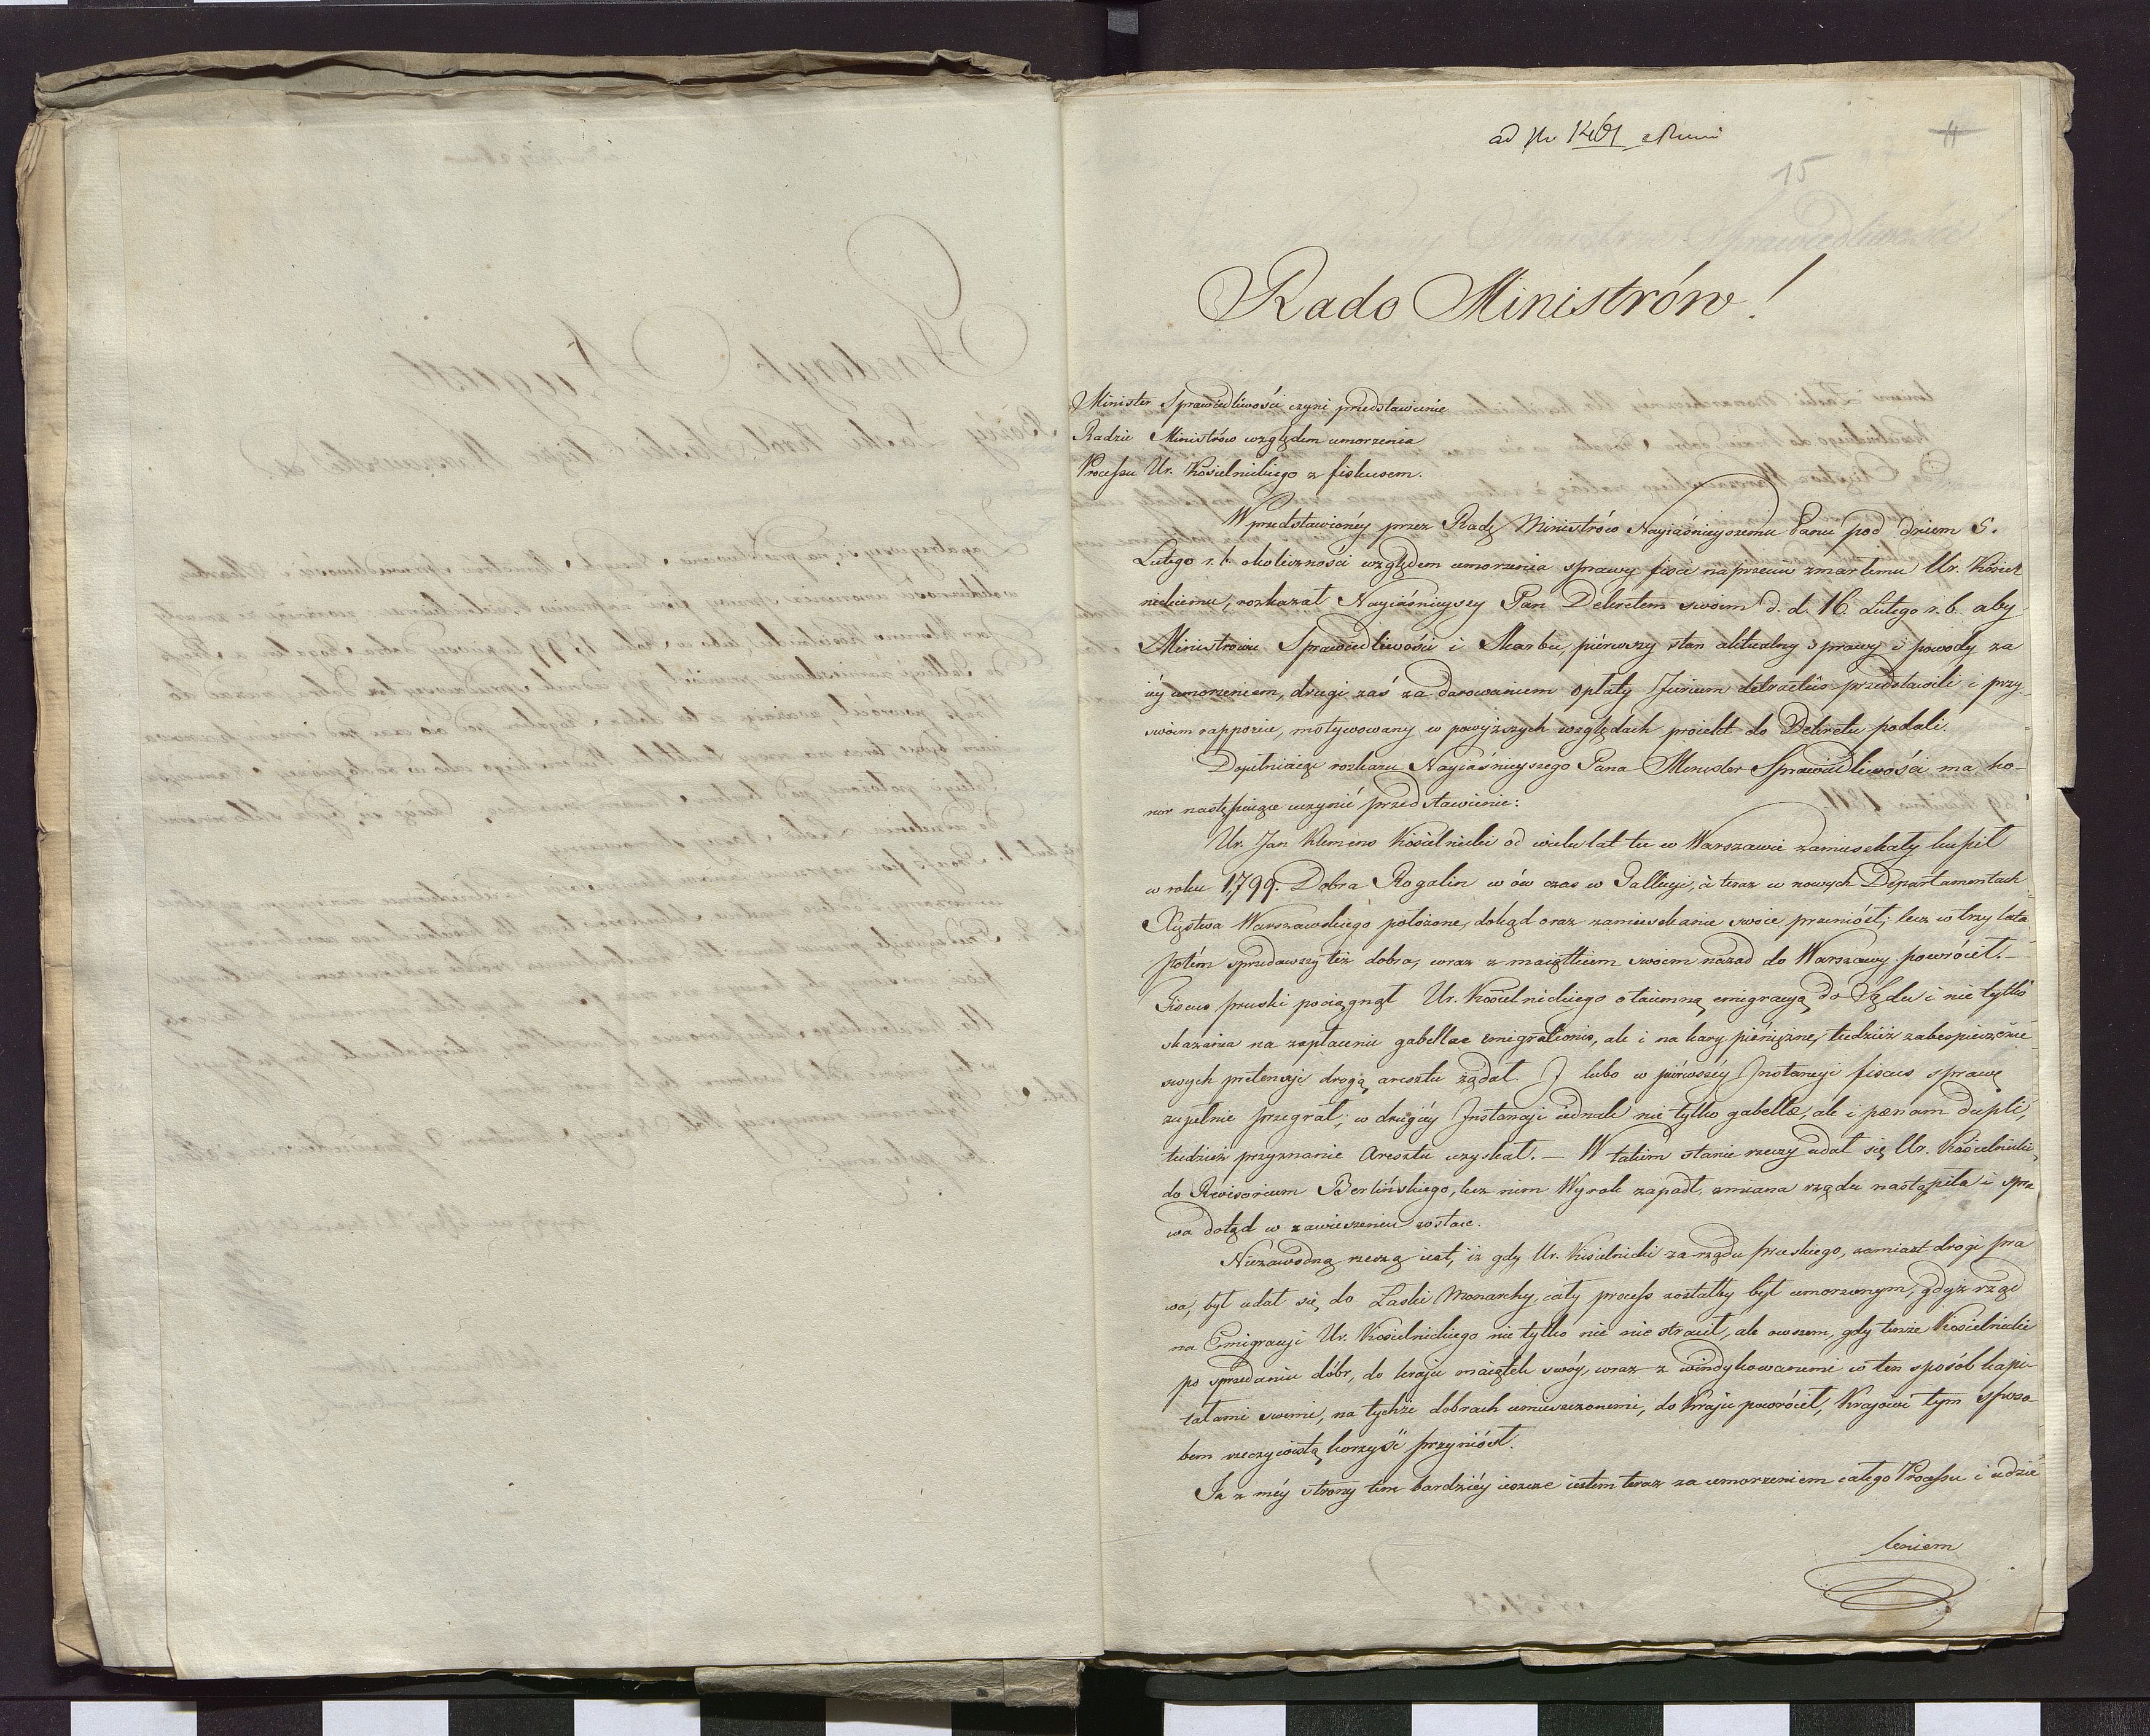 ad Nr 1461
11
15
Rado Ministrów!
Minister Sprawiedliwości czyni przedstawienie
Radzie Ministrów względem umorzenia
Processu Ur. Kosielnickiego z fiskusem.
W przedstawionéy przez Radę Ministrów Nayiaśnieyszemu Panu pod dniem 5.
Lutego r. b. okoliczności względem umorzenia sprawy fisci naprzeciw zmarłemu Ur. Kosiel
nickiemu, rozkazał Nayiaśnieyszy Pan Dekretem swoim d. d. 16. Lutego r. b. aby
Ministrowie Sprawiedliwości i Skarbu, piérwszy stan aktualny sprawy i powody za
iéy umorzeniem, drugi zaś za darowaniem opłaty Jurium detractûs przedstawili i przy
swoim rapporcie, motywowany w powyższych względach proiekt do Dekretu podali.
Dopełniaiąc rozkazu Nayiaśnieyszego Pana Minister Sprawiedliwości ma ho-
nor następuiące uczynić przedstawienie:
Ur. Jan Klemens Kosielnicki od wielu lat tu w Warszawie zamieszkały kupił
w roku 1,799. Dobra Rogalin w ów czas w Gallicyi, à teraz w nowych Departamentach
Xięstwa Warszawskiego położone, dokąd oraz zamieszkanie swoie przeniósł; lecz w trzy lata
potém sprzedawszy też dobra, wraz z maiątkiem swoim nazad do Warszawy powrócił. –
Fiscus pruski pociągnął Ur. Kosielnickiego o taiemną emigracyą do Sądu i nie tylko
skazania na zapłacenie gabellae emigrationis, ale i na kary pieniężne, tudzież zabespieczenie
swych pretensyi drogą aresztu żądał. I lubo w piérwszéy Instancyi fiscus sprawę
zupełnie przegrał; w drugiéy Instancyi iednak nie tylko gabellæ, ale i pænam dupli,
tudzież przyznanie Aresztu uzyskał. – W takim stanie rzeczy udał się Ur. Kosielnicki
do Rewisorium Berlińskiego, lecz nim Wyrok zapadł, zmiana rządu nastąpiła i spra
wa dotąd w zawieszeniu zostaie.
Niezawodną rzeczą iest, iż gdy Ur. Kosielnicki za rządu pruskiego, zamiast drogi pra
wa, był udał się do Łaski Monarchy, cały process zostałby był umorzonym, gdyż rząd
na Emigracyi Ur. Kosielnickiego nie tylko nic nie stracił, ale owszem, gdy tenże Kosielnicki
po sprzedaniu dóbr, do kraju maiątek swóy, wraz z windykowanemi w ten sposób kapi
tałami swemi, na tychże dobrach umieszczonemi, do kraju powrócił, Krajowi tym sposo-
bem rzeczywistą korzyść przyniósł.
Ja z méy strony tem bardziéy ieszcze iestem teraz za umorzeniem całego Processu i udzie
leniem